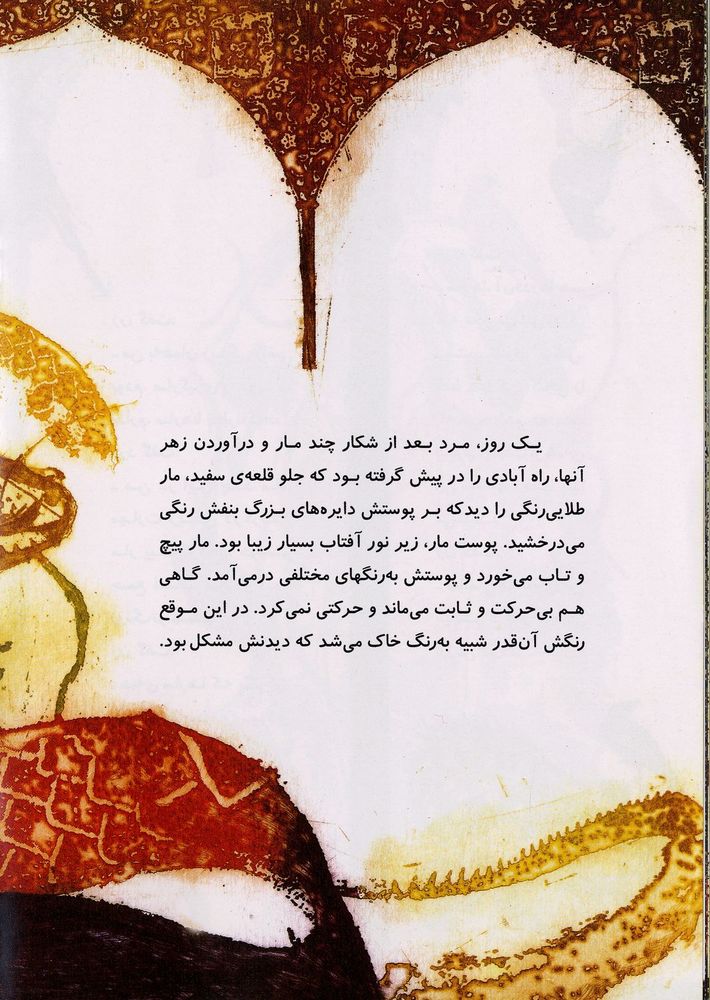 یک روز، مرد بعد از شکار چند مار و درآوردن زهر
آنها، راه آبادی را در پیش گرفته بود که جلو قلعه‌ی سفید، مار
طلایی‌رنگی را دیدکه بر پوستش دایره‌های بزرگ بنفش رنگی
می‌درخشید. پوست مار، زیر نور آفتاب بسیار زیبا بود. مار پیچ
و تاب می‌خورد و پوستش به‌رنگهای مختلفی درمی‌آمد. گاهی
هم بی‌حرکت و ثابت می‌ماند و حرکتی نمی‌کرد. در این موقع
رنگش آن‌قدر شبیه به‌رنگ خاک می‌شد که دیدنش مشکل بود.